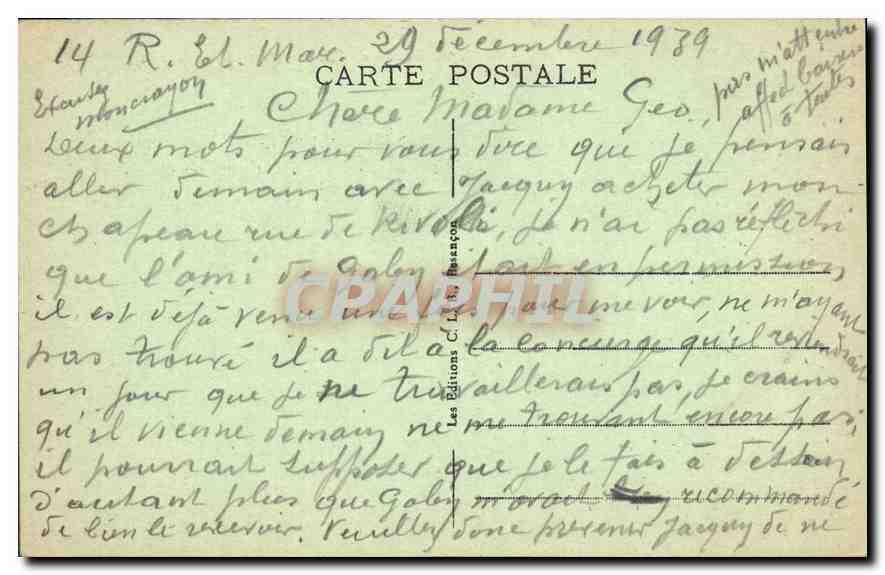 14 R. Et. Mar. 29 décembre 1939
CARTE POSTALE
Excusez
mon crayon
Chère Madame Geo,
Deux mots pour vous dire que je pensais
aller demain avec Jacquy acheter mon
chapeau rue de Rivoli, je n'ai pas réfléchi
que l'ami de Goby était en permission,
il est déjà venu une fois, pour me voir, ne m'ayant
pas trouvé il a dit à la concierge qu'il reviendrait
un jour que je ne travaillerais pas, je crains
qu'il vienne demain, ne me trouvant encore pas,
il pourrait supposer que je le fais à dessein
d'autant plus que Goby m'avait recommandé
de bien le recevoir. Veuillez donc prévenir Jacquy de ne
pas m'attendre
affect baisers
à toutes
Les Editions C. L. B., Besançon
CPAPHIL